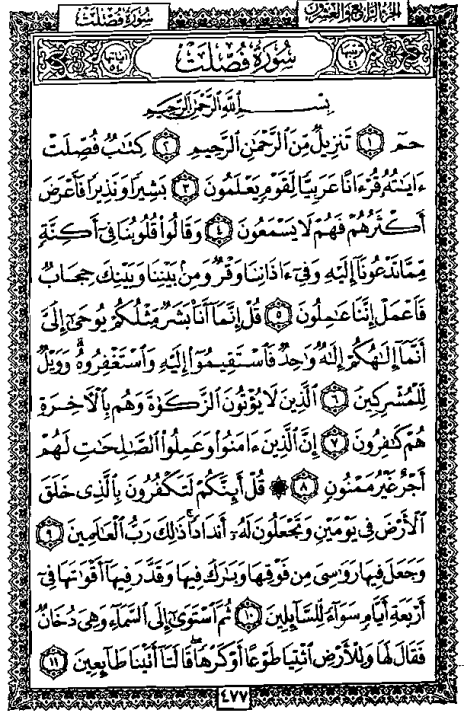 سُورَةُ فُصِّلَتْ
الجزء الرابع والعشرون
سُورَةُ فُصِّلَتْ
بِسْمِ اللَّهِ الرَّحْمَٰنِ الرَّحِيمِ
حمٓ ١ تَنزِيلٌ مِّنَ ٱلرَّحْمَٰنِ ٱلرَّحِيمِ ٢ كِتَٰبٌ فُصِّلَتْ
ءَايَٰتُهُۥ قُرْءَانًا عَرَبِيًّا لِّقَوْمٍ يَعْلَمُونَ ٣ بَشِيرًا وَنَذِيرًا فَأَعْرَضَ
أَكْثَرُهُمْ فَهُمْ لَا يَسْمَعُونَ ٤ وَقَالُوا۟ قُلُوبُنَا فِىٓ أَكِنَّةٍ
مِّمَّا تَدْعُونَآ إِلَيْهِ وَفِىٓ ءَاذَانِنَا وَقْرٌ وَمِنۢ بَيْنِنَا وَبَيْنِكَ حِجَابٌ
فَٱعْمَلْ إِنَّنَا عَٰمِلُونَ ٥ قُلْ إِنَّمَآ أَنَا۠ بَشَرٌ مِّثْلُكُمْ يُوحَىٰٓ إِلَىَّ
أَنَّمَآ إِلَٰهُكُمْ إِلَٰهٌ وَٰحِدٌ فَٱسْتَقِيمُوٓا۟ إِلَيْهِ وَٱسْتَغْفِرُوهُ ۗ وَوَيْلٌ
لِّلْمُشْرِكِينَ ٦ ٱلَّذِينَ لَا يُؤْتُونَ ٱلزَّكَوٰةَ وَهُم بِٱلْءَاخِرَةِ
هُمْ كَٰفِرُونَ ٧ إِنَّ ٱلَّذِينَ ءَامَنُوا۟ وَعَمِلُوا۟ ٱلصَّٰلِحَٰتِ لَهُمْ
أَجْرٌ غَيْرُ مَمْنُونٍ ٨ ۞ قُلْ أَئِنَّكُمْ لَتَكْفُرُونَ بِٱلَّذِى خَلَقَ
ٱلْأَرْضَ فِى يَوْمَيْنِ وَتَجْعَلُونَ لَهُۥٓ أَندَادًا ۚ ذَٰلِكَ رَبُّ ٱلْعَٰلَمِينَ ٩
وَجَعَلَ فِيهَا رَوَٰسِىَ مِن فَوْقِهَا وَبَٰرَكَ فِيهَا وَقَدَّرَ فِيهَآ أَقْوَٰتَهَا فِىٓ
أَرْبَعَةِ أَيَّامٍ سَوَآءً لِّلسَّآئِلِينَ ١٠ ثُمَّ ٱسْتَوَىٰٓ إِلَى ٱلسَّمَآءِ وَهِىَ دُخَانٌ
فَقَالَ لَهَا وَلِلْأَرْضِ ٱئْتِيَا طَوْعًا أَوْ كَرْهًا قَالَتَآ أَتَيْنَا طَآئِعِينَ ١١
٤٧٧